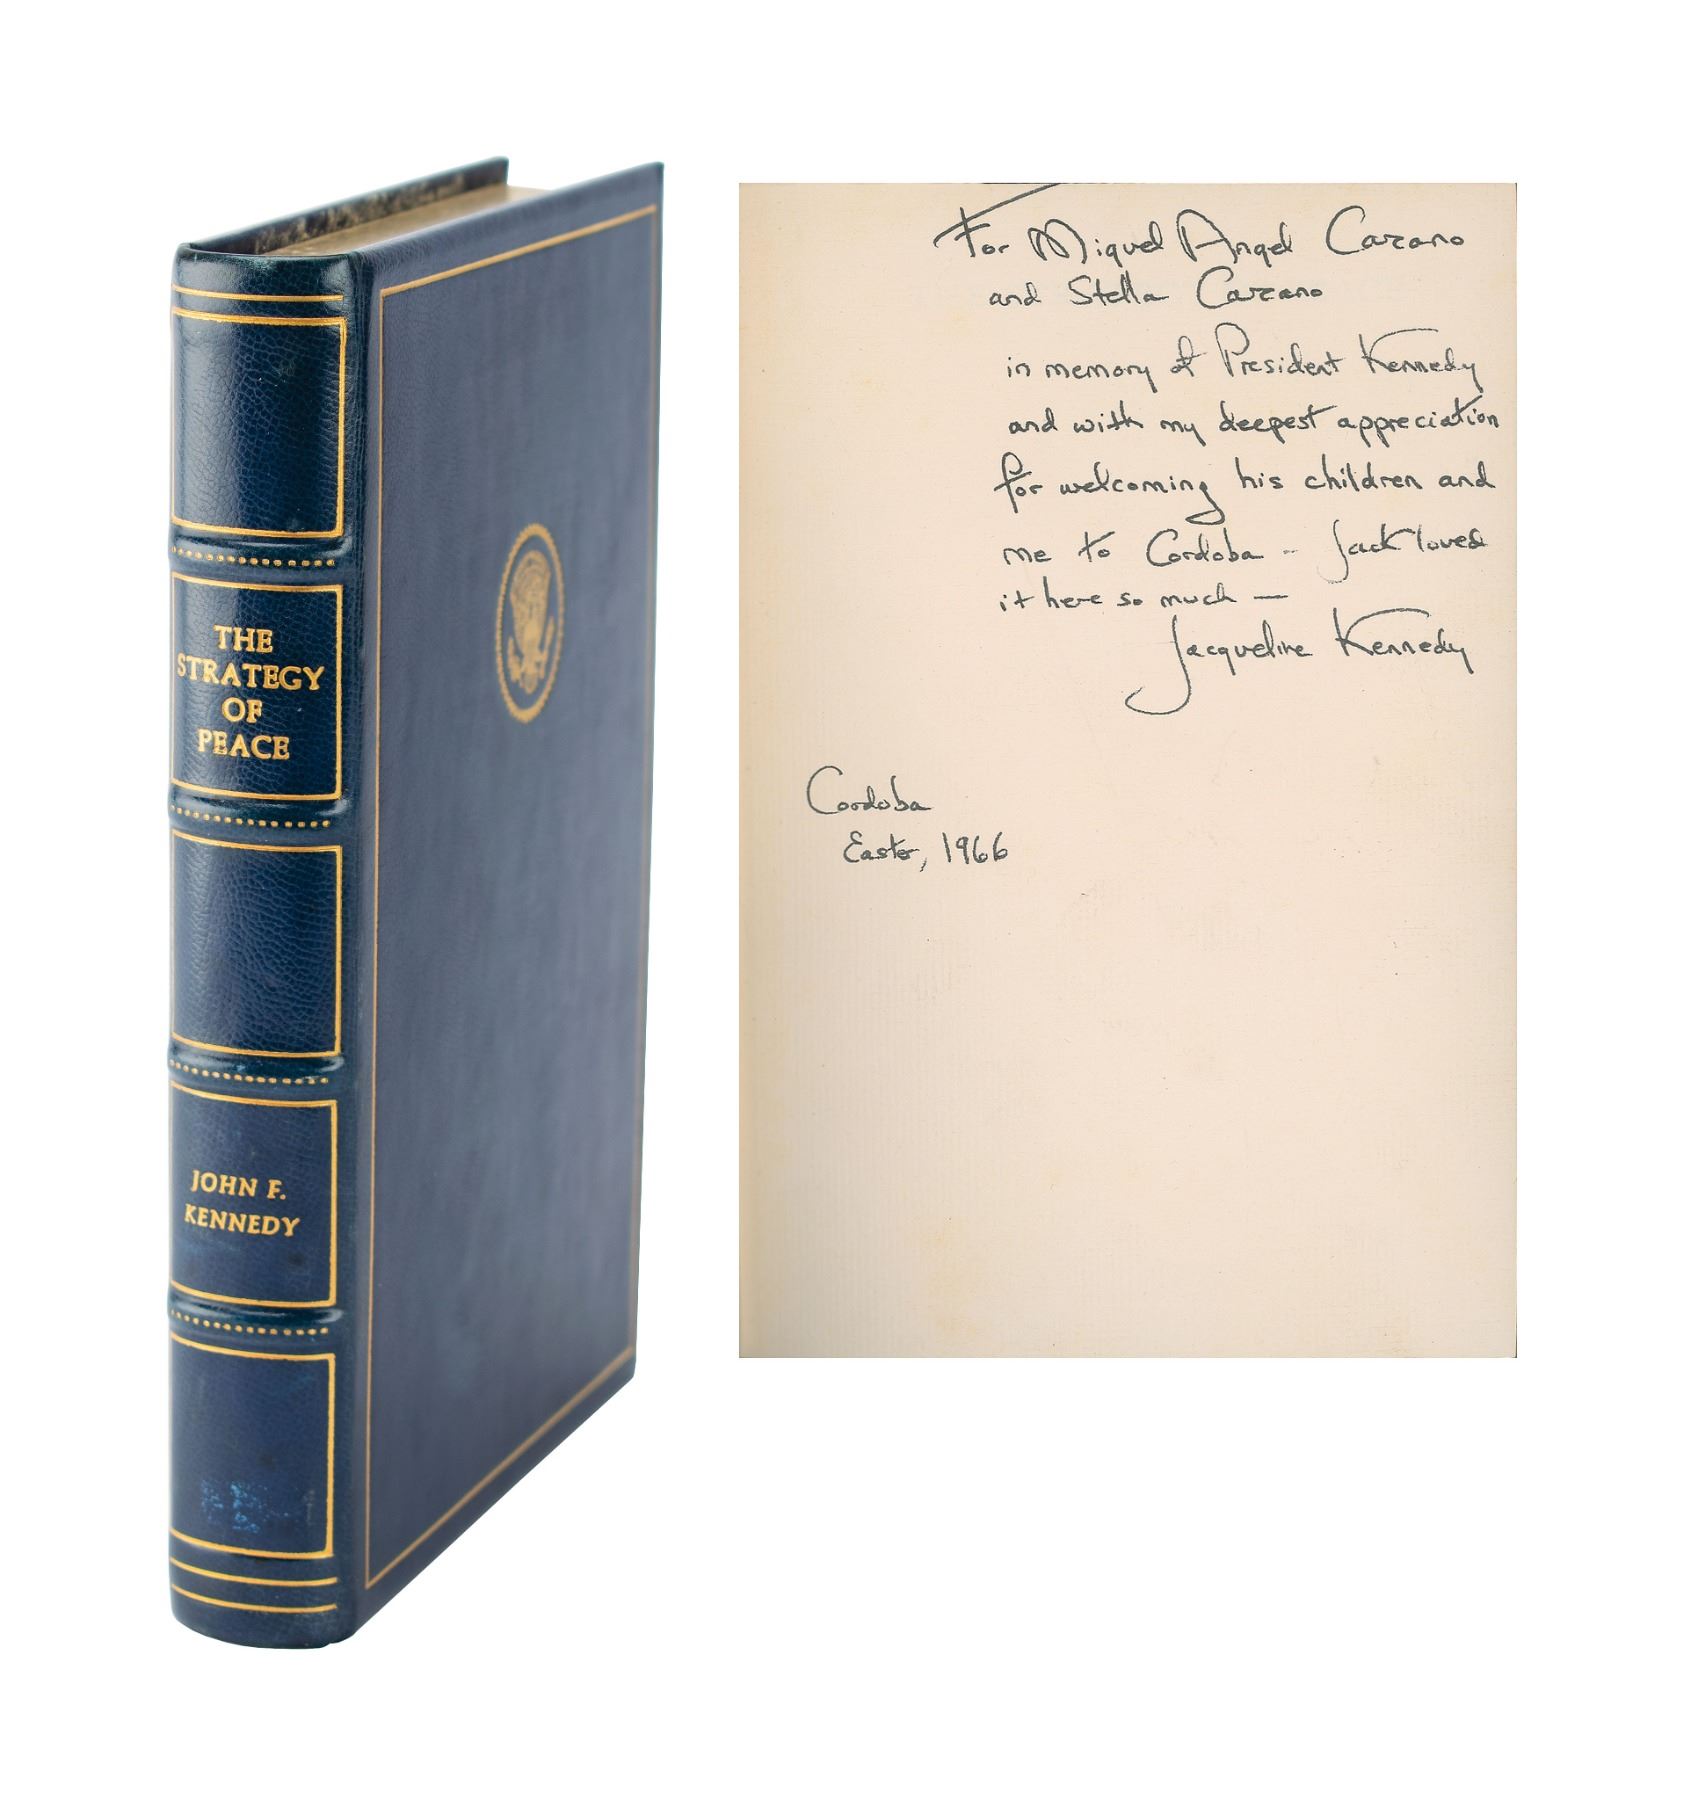 THE
STRATEGY
OF
PEACE
JOHN F.
KENNEDY
For Miguel Angel Carcano
and Stella Carcano
in memory of President Kennedy
and with my deepest appreciation
for welcoming his children and
me to Cordoba - Jack loved
it here so much —
Jacqueline Kennedy
Cordoba
Easter, 1966